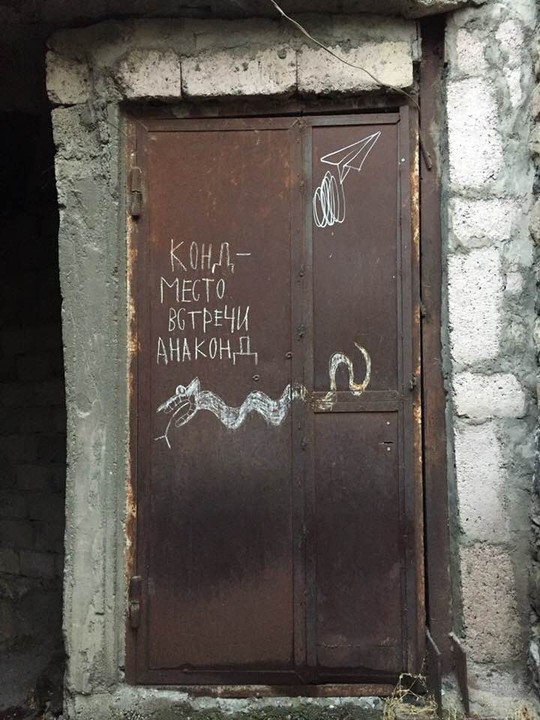 КОНД–
МЕСТО
ВСТРЕЧИ
АНАКОНД